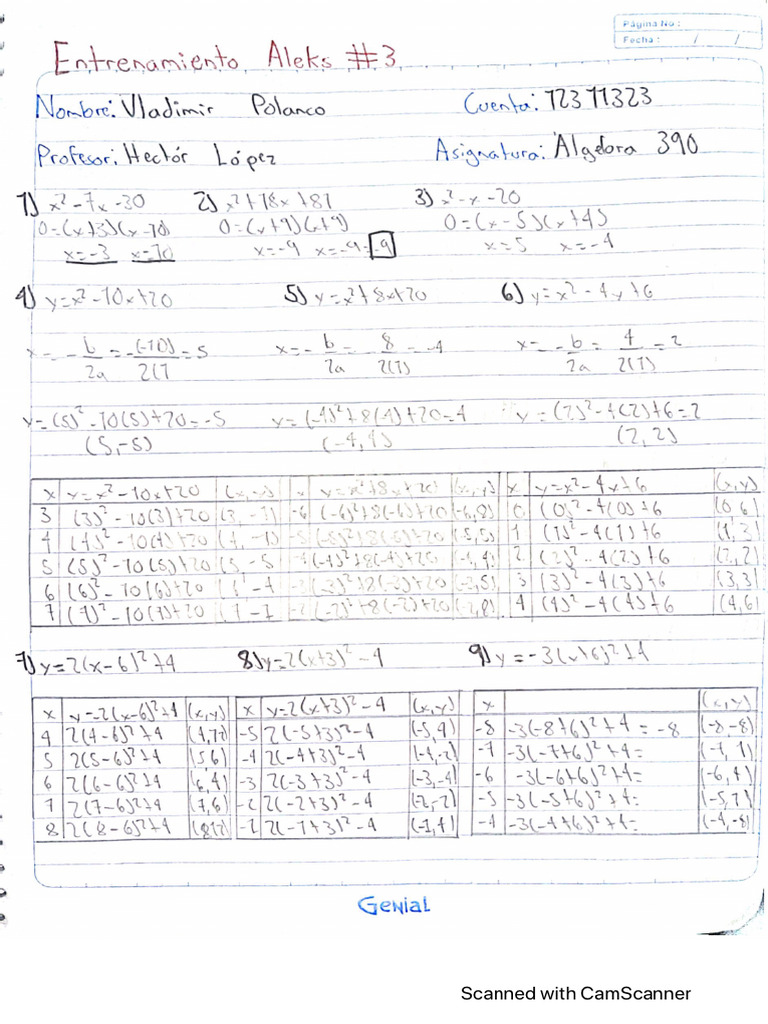 Página No :
Fecha : / /
Entrenamiento Aleks #3
Nombre: Vladimir Polanco Cuenta: 12311323
Profesor: Hectór López Asignatura: Álgebra 390
1) x² - 7x - 30 2) x² + 18x + 81 3) x² - x - 20
0 = (x+3)(x-10) 0 = (x+9)(x+9) 0 = (x-5)(x+4)
x=-3 x=10 x=-9 x=-9=-9 x=5 x=-4
4) y=x²-10x+20 5) y=x²+8x+20 6) y=x²-4x+6
x=-b/2a=-(-10)/2(1=5 x=-b/2a=-8/2(1)=-4 x=-b/2a=4/2(1)=2
y=(5)²-10(5)+20=-5 y=(-4)²+8(4)+20=4 y=(2)²-4(2)+6=2
(5,-5) (-4,4) (2,2)
x y=x²-10x+20 (x,y) x y=x²+8x+20 (x,y) x y=x²-4x+6 (x,y)
3 (3)²-10(3)+20 (3,-1) -6 (-6)²+8(-6)+20 (-6,8) 0 (0)²-4(0)+6 (0 6)
4 (4)²-10(4)+20 (4,-4) -5 (-5)²+8(-5)+20 (-5,5) 1 (1)²-4(1)+6 (1,3)
5 (5)²-10(5)+20 (5,-5 -4 (-4)²+8(-4)+20 (-4,4) 2 (2)²-4(2)+6 (2,2)
6 (6)²-10(6)+20 (6 -4 -3 (-3)²+8(-3)+20 (-3,5) 3 (3)²-4(3)+6 (3,3)
7 (7)²-10(7)+20 (7 -1 -2 (-2)²+8(-2)+20 (-2,8) 4 (4)²-4(4)+6 (4,6)
7) y=2(x-6)²+4 8) y=2(x+3)²-4 9) y=-3(x+6)²+4
x y=2(x-6)²+4 (x,y) x y=2(x+3)²-4 (x,y) x (x,y)
4 2(4-6)²+4 (4,12 -5 2(-5+3)²-4 (-5,4) -8 -3(-8+6)²+4=-8 (-8-8)
5 2(5-6)²+4 (5 6) -4 2(-4+3)²-4 (-4,-2) -7 -3(-7+6)²+4= (-7,1)
6 2(6-6)²+4 (6,4) -3 2(-3+3)²-4 (-3,-4) -6 -3(-6+6)²+4= (-6,4)
7 2(7-6)²+4 (7,6) -2 2(-2+3)²-4 (-2,-2) -5 -3(-5+6)²+4= (-5,1)
8 2(8-6)²+4 (8 12) -1 2(-1+3)²-4 (-1,4) -4 -3(-4+6)²+4= (-4,-8)
Genial
Scanned with CamScanner